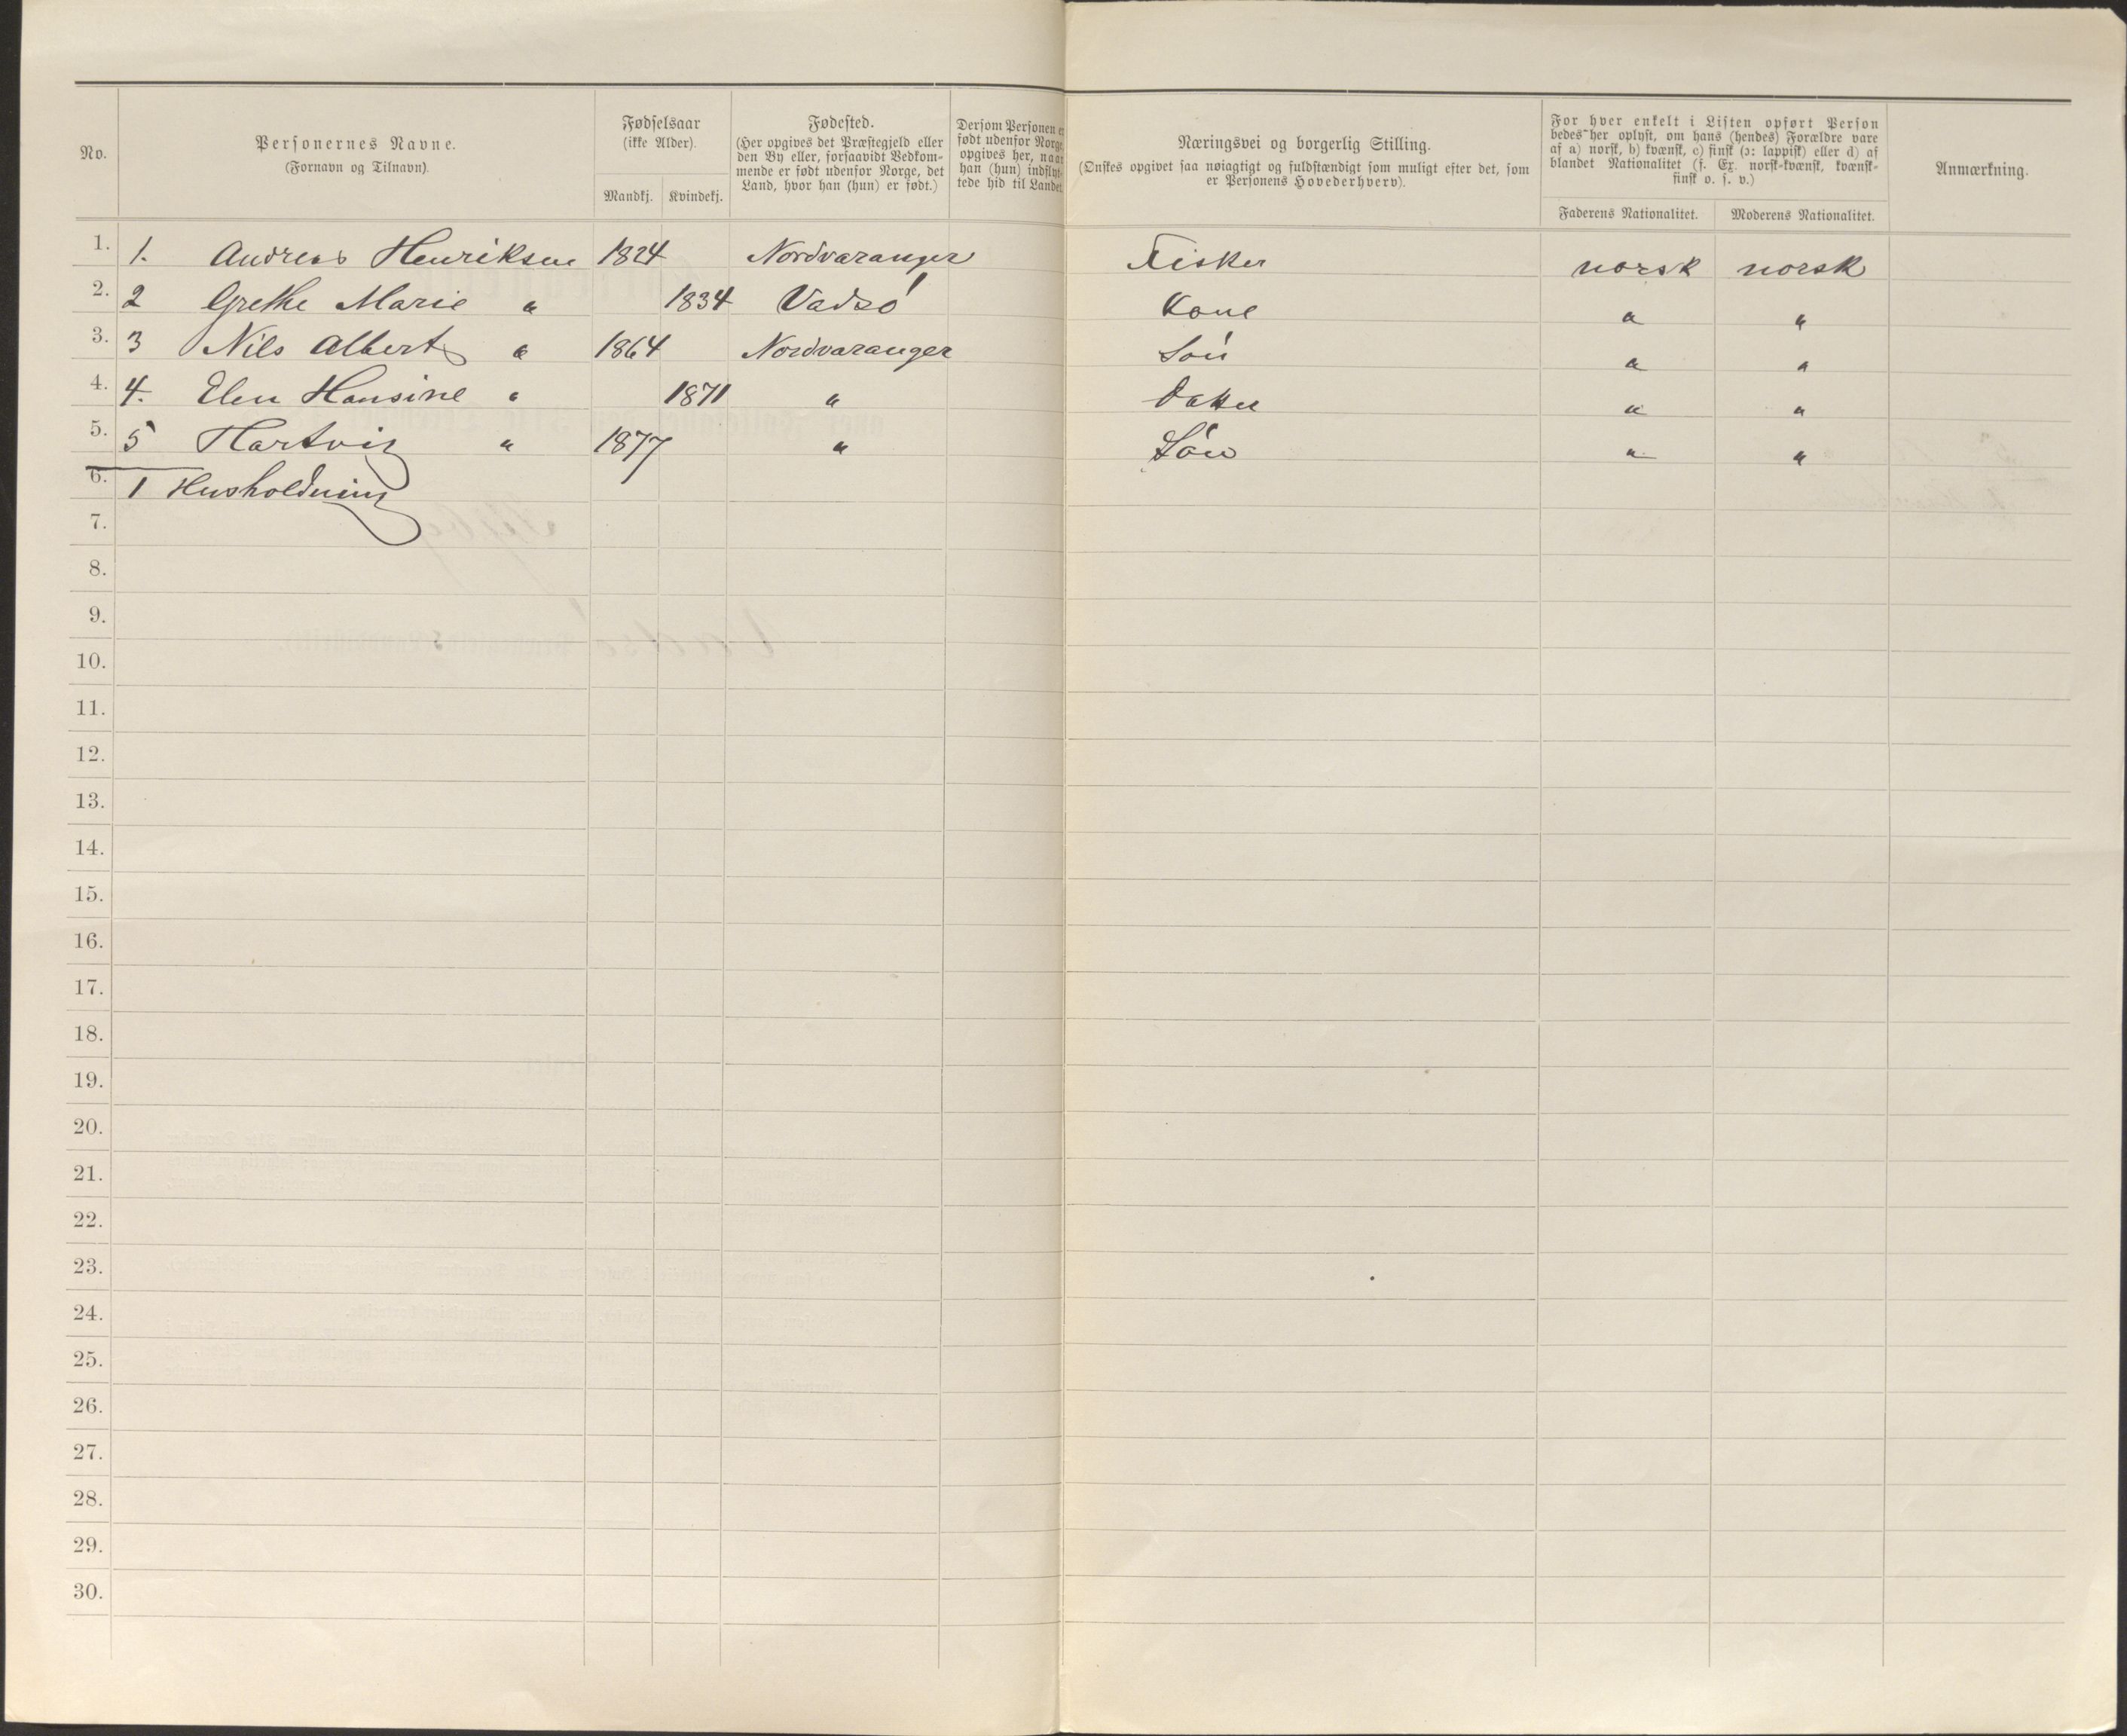 No.
Personernes Navne.
(Fornavn og Tilnavn).
Fødselsaar
(ikke Alder).
Mandkj. Kvindekj.
Fødested.
(Her opgives det Præstegjeld eller
den By eller, forsaavidt Vedkom-
mende er født udenfor Norge, det
Land, hvor han (hun) er født.)
Dersom Personen er
født udenfor Norge,
opgives her, naar
han (hun) indflyt-
tede hid til Landet
Næringsvei og borgerlig Stilling.
(Ønskes opgivet saa nøiagtigt og fuldstændigt som muligt efter det, som
er Personens Hovederhverv).
For hver enkelt i Listen opført Person
bedes her oplyst, om hans (hendes) Forældre vare
af a) norsk, b) kvænsk, c) finsk (ɔ: lappisk) eller d) af
blandet Nationalitet (f. Ex. norsk-kvænsk, kvænsk-
finsk o. s. v.)
Faderens Nationalitet. Moderens Nationalitet.
Anmærkning.
1. 1. Andreas Henriksen 1824 Nordvaranger Fisker norsk norsk
2. 2 Grethe Marie " 1834 Vadsö Kone " "
3. 3 Nils Albert " 1864 Nordvaranger Sön " "
4. 4. Elen Hansine " 1871 " Datter " "
5. 5 Hartvig " 1877 " Sön " "
6. 1 Husholdning
7.
8.
9.
10.
11.
12.
13.
14.
15.
16.
17.
18.
19.
20.
21.
22.
23.
24.
25.
26.
27.
28.
29.
30.